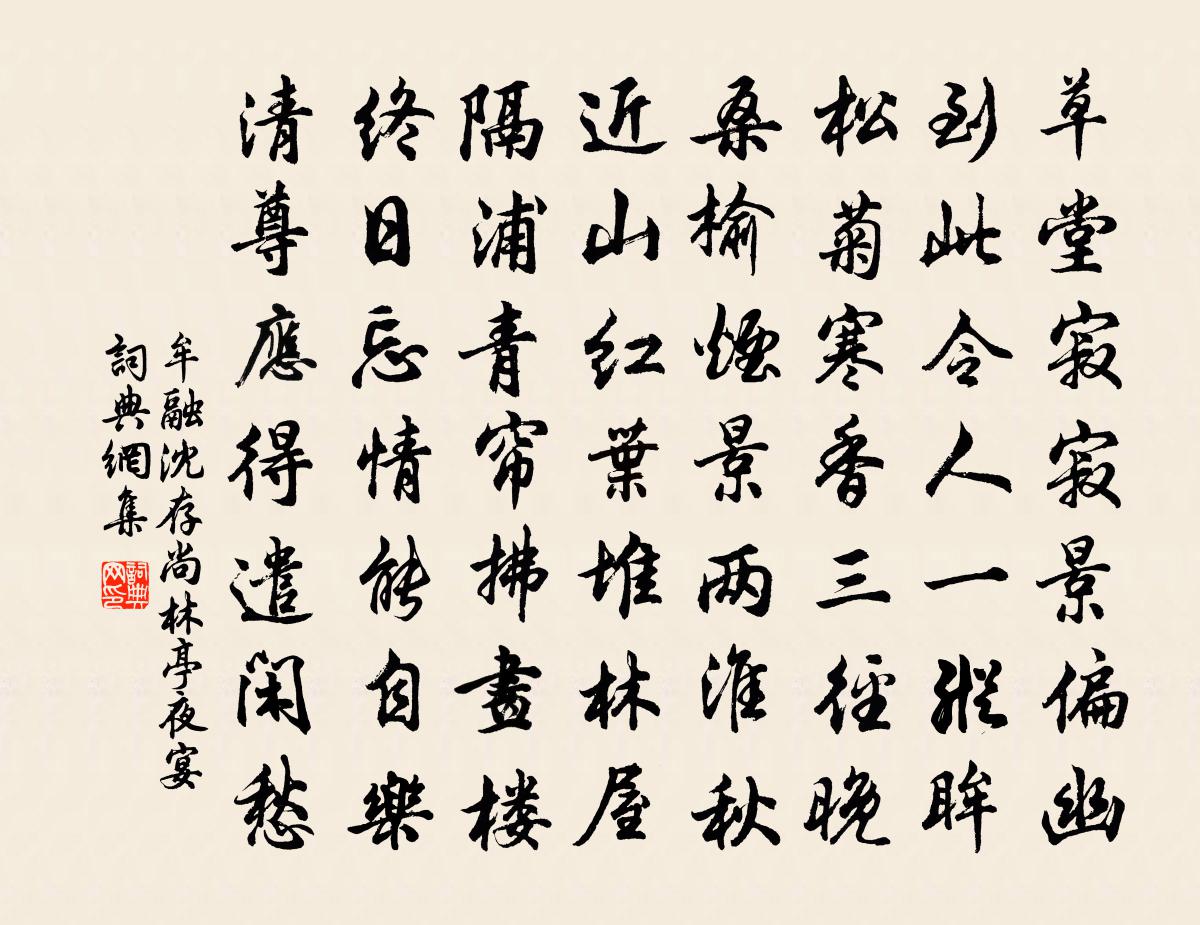 草堂寂寂景偏幽
到此令人一縱眸
松菊寒香三徑晚
桑榆煙景两淮秋
近山紅葉堆林屋
隔浦青帘拂畫楼
終日忘情能自樂
清尊應得遣閑愁
牟融沈存尚林亭夜宴
詞典網集
詞典网印